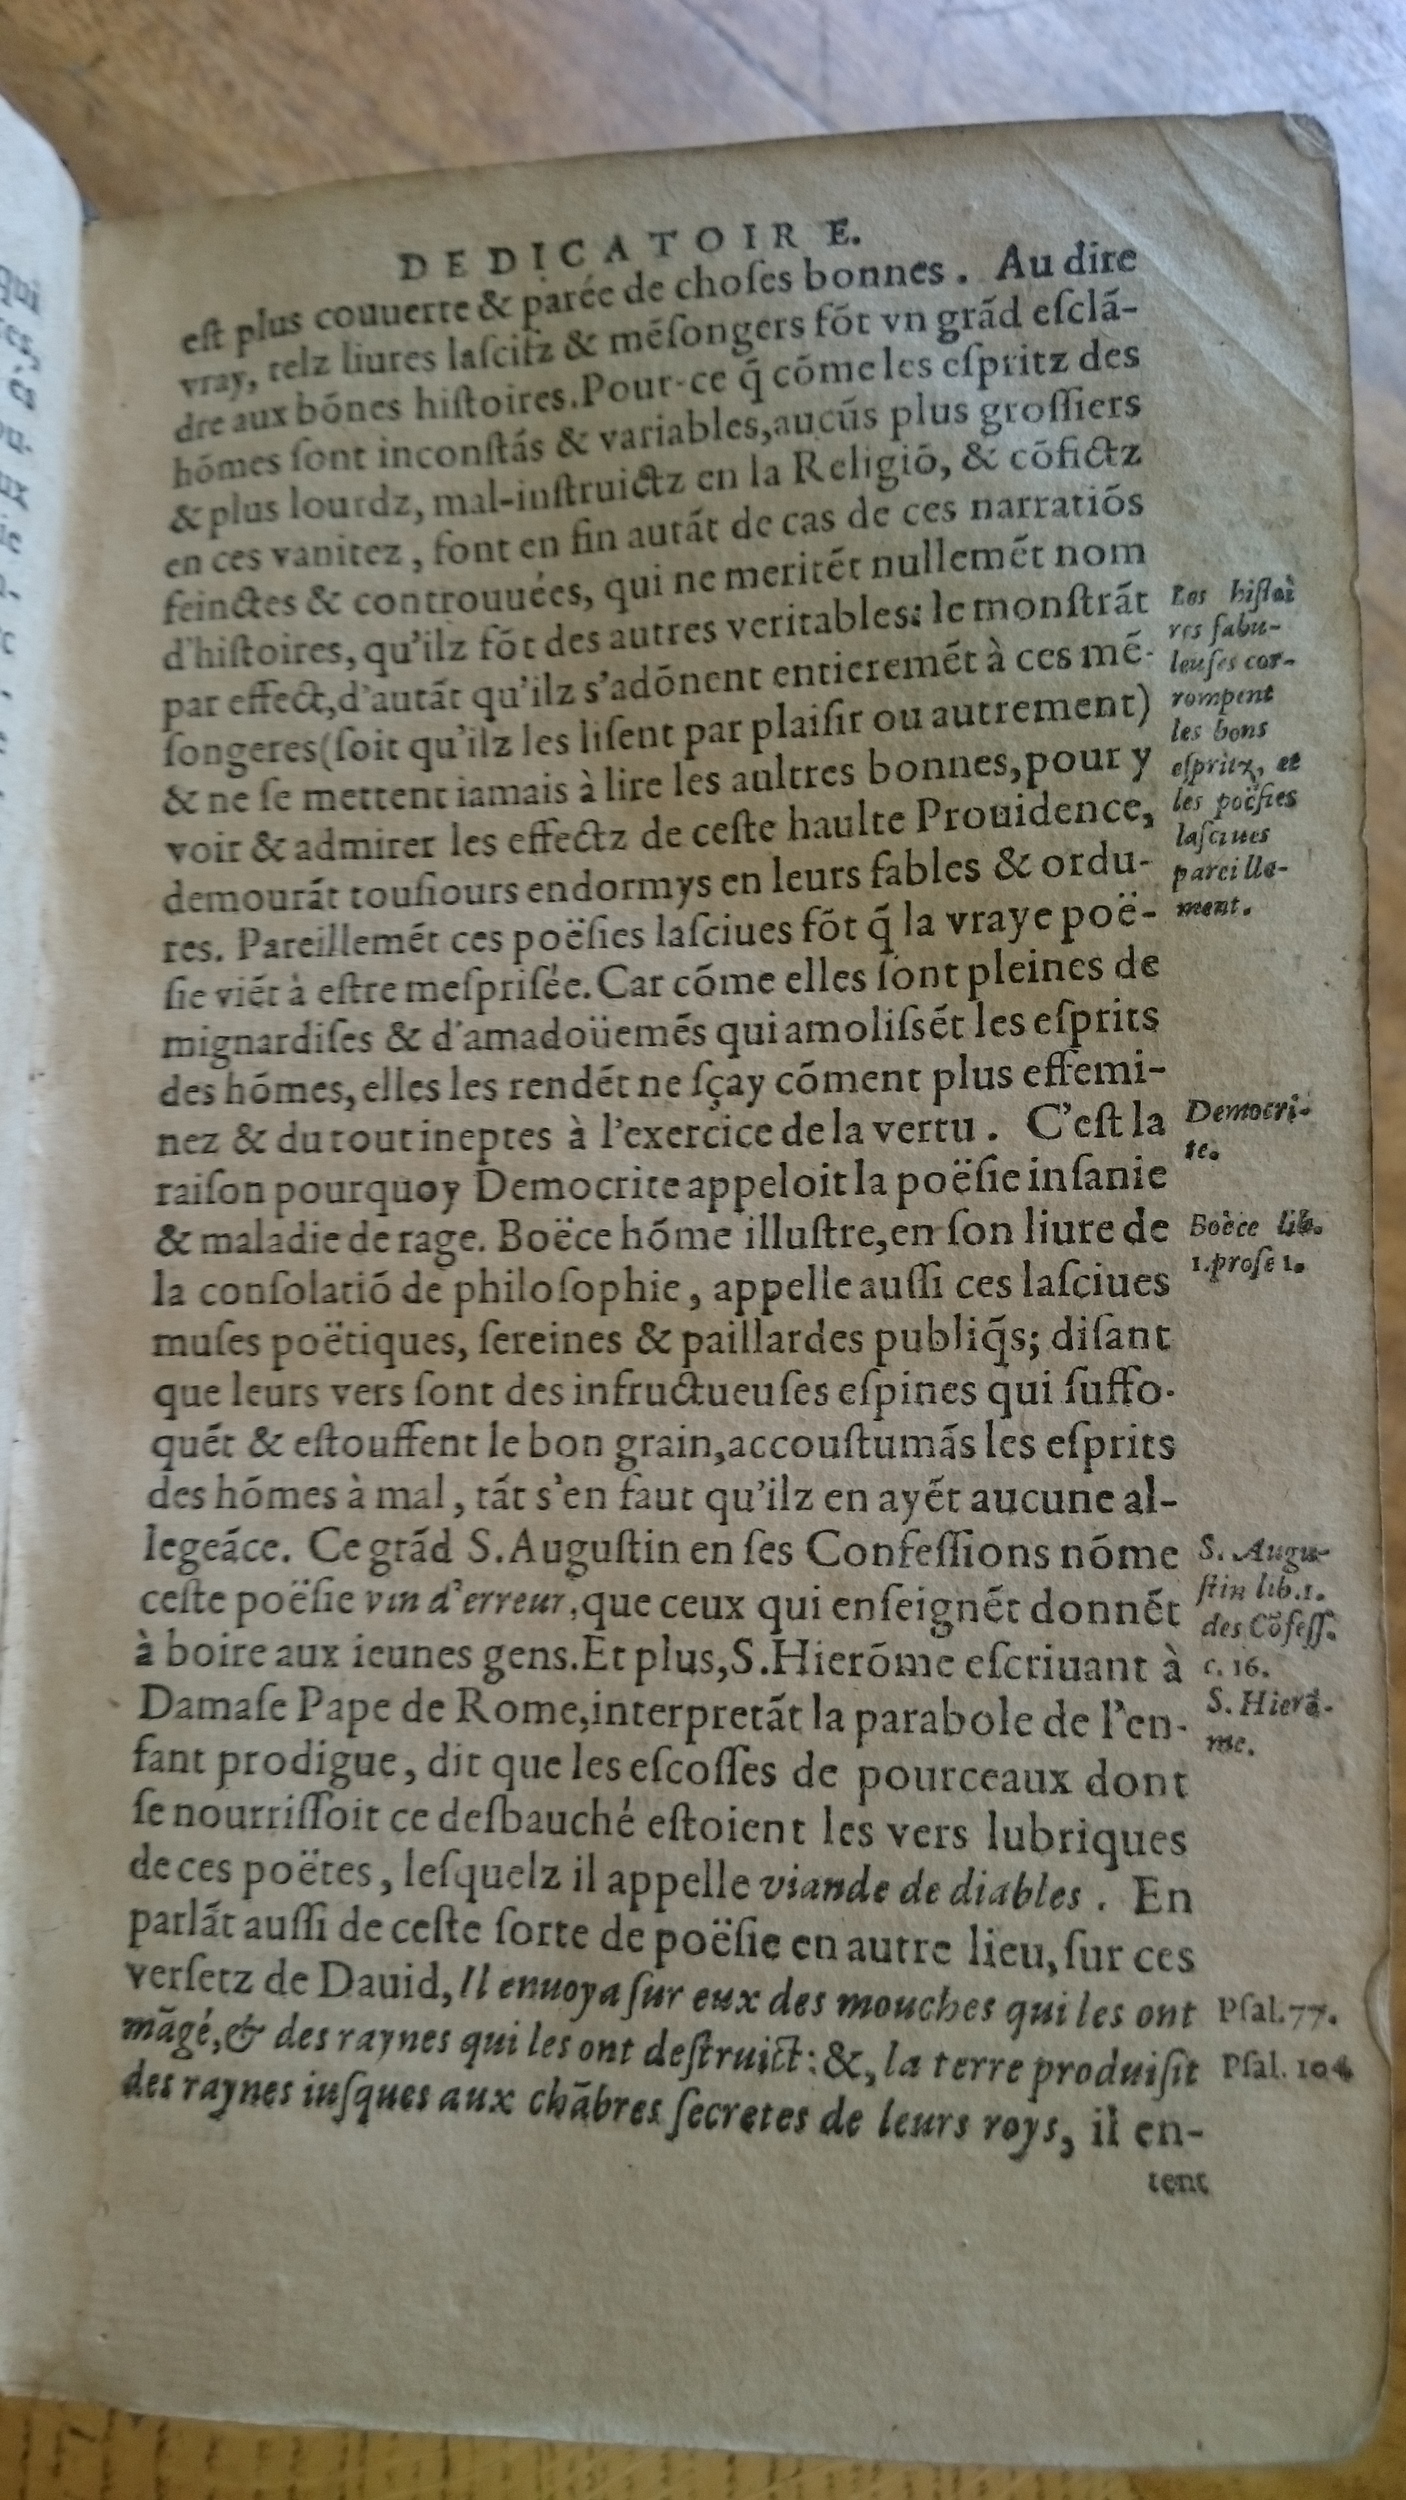 DEDICATOIRE.
eſt plus couuerte & parée de choſes bonnes. Au dire
vray, telz liures laſcifz & mẽſongers fõt vn grãd eſclã-
dre aux bõnes hiſtoires. Pour-ce q̃ cõme les eſpritz des
hõmes ſont inconſtãs & variables, aucũs plus groſſiers
& plus lourdz, mal-inſtruictz en la Religiõ, & cõfictz
en ces vanitez, font en fin autãt de cas de ces narratiõs
feinctes & controuuées, qui ne meritẽt nullemẽt nom
d'hiſtoires, qu'ilz fõt des autres veritables: le monſtrãt
par effect, d'autãt qu'ilz s'adõnent entieremẽt à ces mẽ-
ſongeres (ſoit qu'ilz les liſent par plaiſir ou autrement)
& ne ſe mettent iamais à lire les aultres bonnes, pour y
voir & admirer les effectz de ceſte haulte Prouidence,
demourãt touſiours endormys en leurs fables & ordu-
res. Pareillemẽt ces poëſies laſciues fõt q̃ la vraye poë-
ſie viẽt à eſtre meſpriſée. Car cõme elles ſont pleines de
mignardiſes & d'amadoüemẽs qui amoliſsẽt les eſprits
des hõmes, elles les rendẽt ne ſçay cõment plus effemi-
nez & du tout ineptes à l'exercice de la vertu. C'eſt la
raiſon pourquoy Democrite appeloit la poëſie inſanie
& maladie de rage. Boëce hõme illuſtre, en ſon liure de
la conſolatiõ de philoſophie, appelle auſſi ces laſciues
muſes poëtiques, ſereines & paillardes publiq̃s; diſant
que leurs vers ſont des infructueuſes eſpines qui ſuffo-
quẽt & eſtouffent le bon grain, accouſtumãs les eſprits
des hõmes à mal, tãt s'en faut qu'ilz en ayẽt aucune al-
legeãce. Ce grãd S. Auguſtin en ſes Confeſſions nõme
ceſte poëſie vin d'erreur, que ceux qui enſeignẽt donnẽt
à boire aux ieunes gens. Et plus, S. Hierõme eſcriuant à
Damaſe Pape de Rome, interpretãt la parabole de l'en-
fant prodigue, dit que les eſcoſſes de pourceaux dont
ſe nourriſſoit ce deſbauché eſtoient les vers lubriques
de ces poëtes, leſquelz il appelle viande de diables. En
parlãt auſſi de ceſte ſorte de poëſie en autre lieu, ſur ces
verſetz de Dauid, Il enuoya ſur eux des mouches qui les ont
mãgé, & des raynes qui les ont deſtruict: &, la terre produiſit
des raynes iuſques aux chãbres ſecretes de leurs roys, il en-
tent
Les hiſtoi
res fabu-
leuſes cor-
rompent
les bons
eſpritz, et
les poëſies
laſciues
pareille-
ment.
Democri-
te.
Boëce lib.
1. proſe 1.
S. Augu-
ſtin lib. 1.
des Cõfeſſ.
c. 16.
S. Hierõ-
me.
Pſal. 77.
Pſal. 104